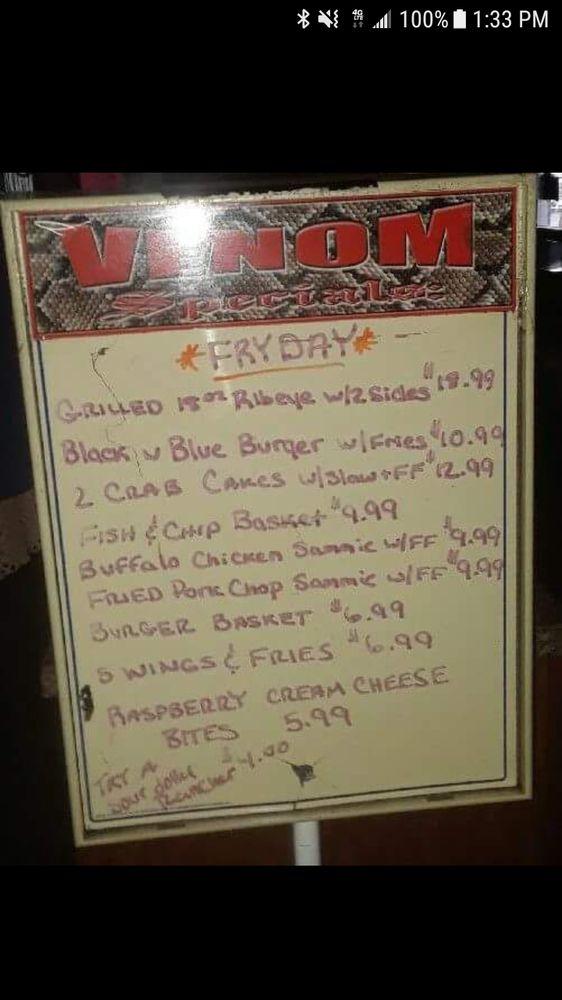 4G LTE 100% 1:33 PM
VENOM
Specials
*FRYDAY*
GRILLED 18oz Ribeye w/2 Sides $18.99
Black n Blue Burger w/Fries $10.99
2 CRAB CAKES w/Slaw + FF $12.99
FISH & CHIP Basket $9.99
Buffalo Chicken Sammie w/FF $9.99
FRIED Pork Chop Sammie w/FF $9.99
BURGER BASKET $6.99
5 WINGS & FRIES $6.99
RASPBERRY CREAM CHEESE
BITES 5.99
TRY A
$4.00